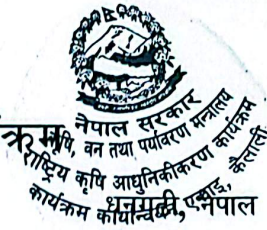 नेपाल सरकार
कृषि, वन तथा पर्यावरण मन्त्रालय
राष्ट्रिय कृषि आधुनिकीकरण कार्यक्रम
कार्यक्रम कार्यान्वयन एकाइ, कैलाली
धनगढी, नेपाल